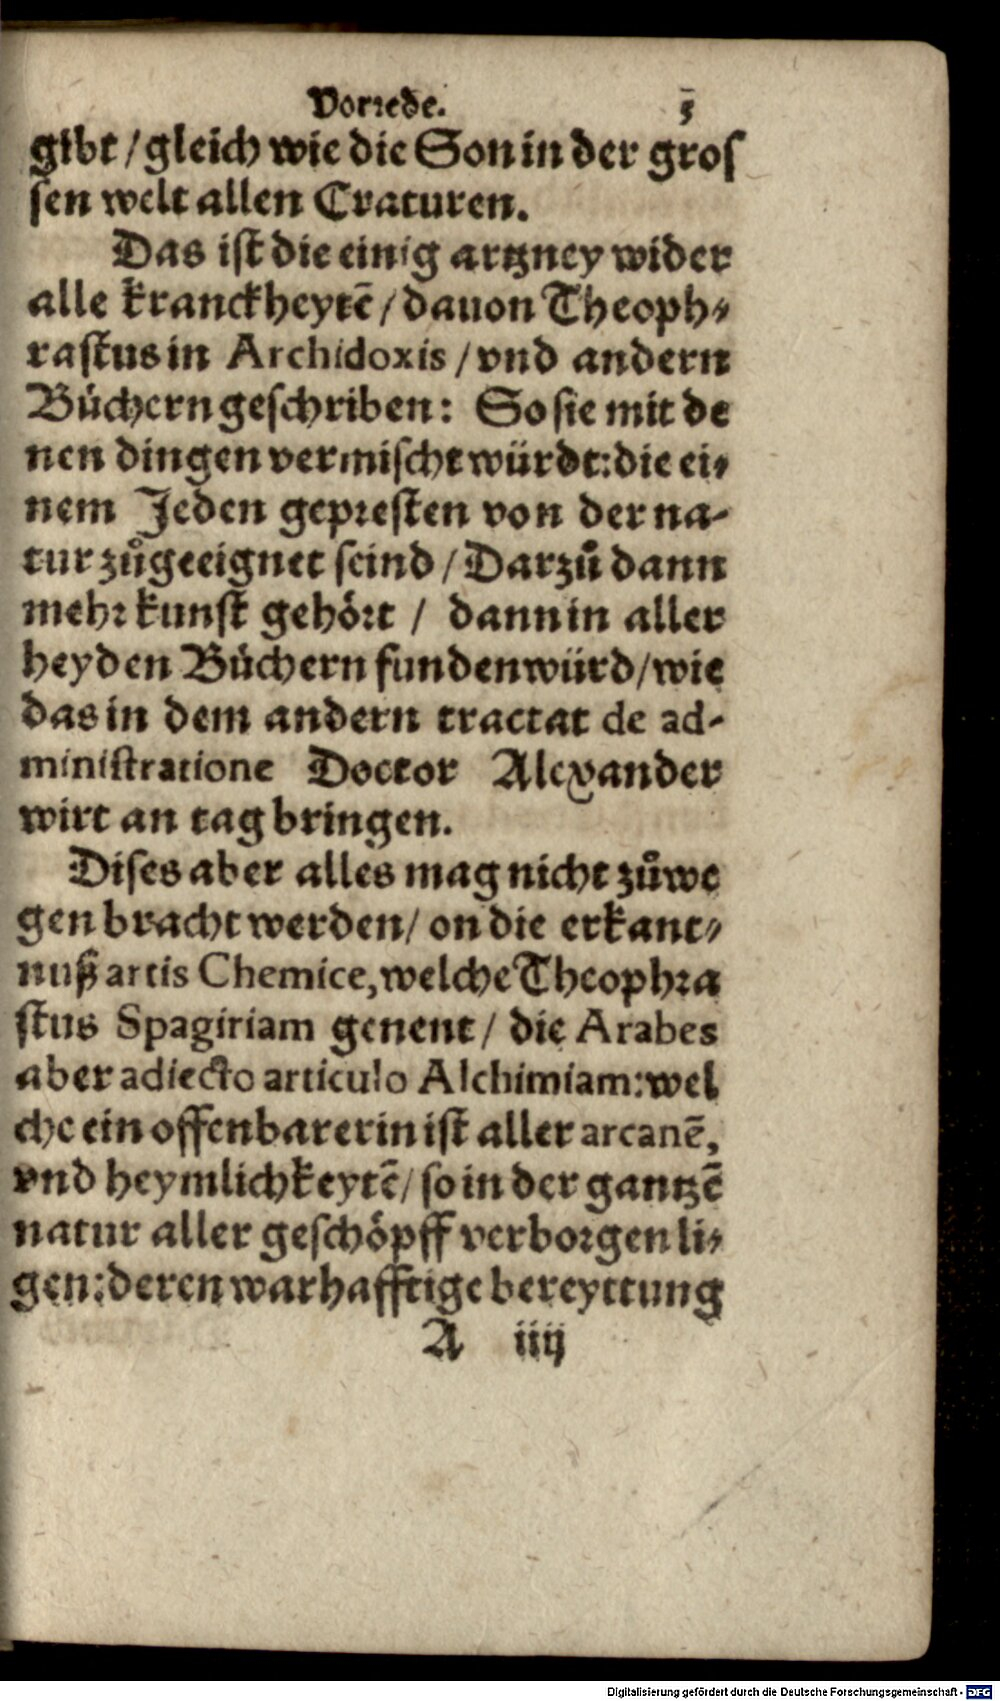 Vorrede. 5
gibt / gleich wie die Son in der gros
sen welt allen Craturen.
Das ist die einig artzney wider
alle kranckheytē / dauon Theoph⸗
rastus in Archidoxis / vnd andern
Bůchern geschriben: So sie mit de
nen dingen vermischt würdt: die ei⸗
nem Jeden gepresten von der na⸗
tur zůgeeignet seind / Darzů dann
mehr kunst gehört / dann in aller
heyden Bůchern funden würd / wie
das in dem andern tractat de ad-
ministratione Doctor Alexander
wirt an tag bringen.
Dises aber alles mag nicht zůwe
gen bracht werden / on die erkant⸗
nuß artis Chemice, welche Theophra
stus Spagiriam genent / die Arabes
aber adiecto articulo Alchimiam: wel
che ein offenbarerin ist aller arcanē,
vnd heymlichkeytē / so in der gantzē
natur aller geschöpff verborgen li⸗
gen: deren warhafftige bereyttung
A iiij
Digitalisierung gefördert durch die Deutsche Forschungsgemeinschaft - DFG